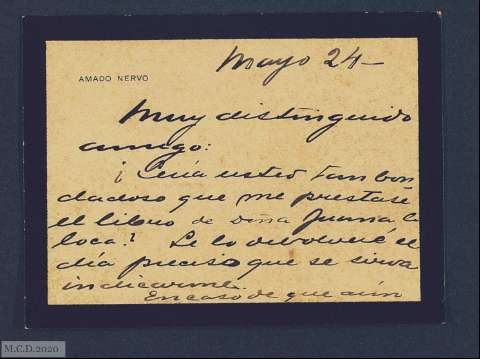 AMADO NERVO
Mayo 24-
Muy distinguido
amigo:
¡ Sería usted tan bon
dadoso que me prestase
el libro de doña Juana la
loca? Se lo devolveré el
día preciso que se sirva
indicarme.
En caso de que aún
M.C.D.2020